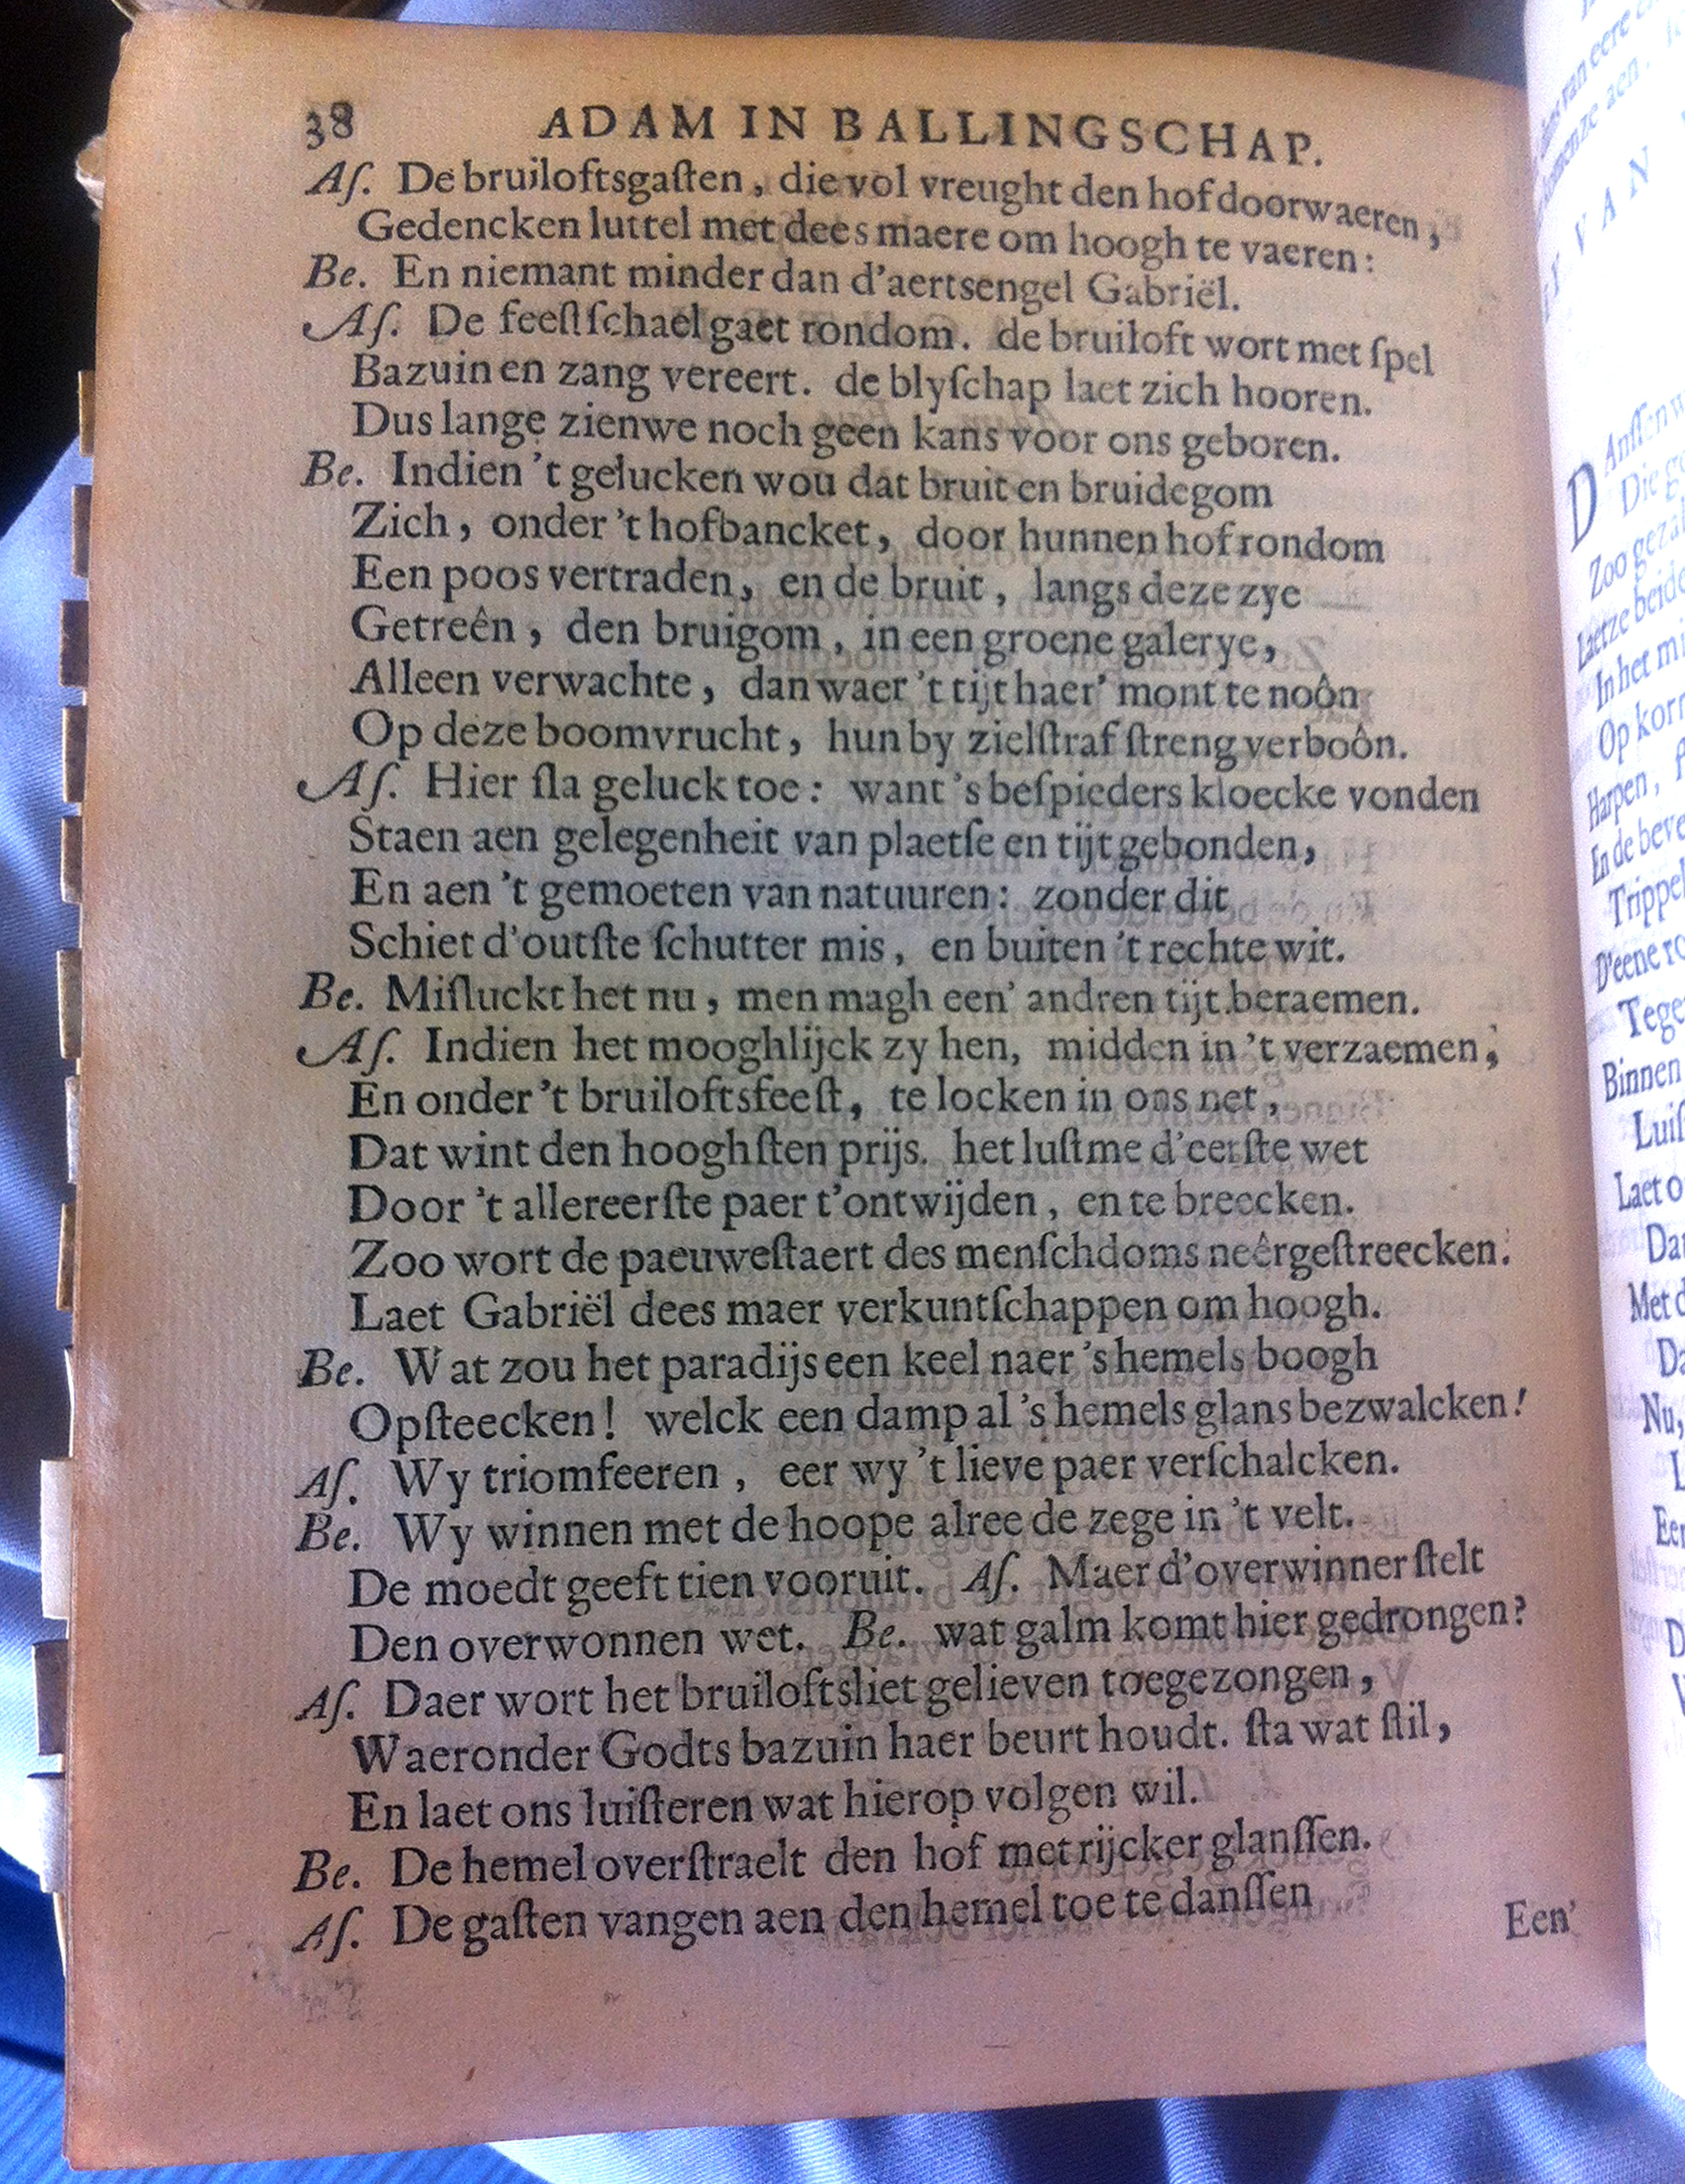 38 ADAM IN BALLINGSCHAP.
Aſ. De bruiloftsgaſten, die vol vreught den hof doorwaeren,
Gedencken luttel met dees maere om hoogh te vaeren:
Be. En niemant minder dan d'aertsengel Gabriël.
Aſ. De feeſtſchael gaet rondom. de bruiloft wort met ſpel
Bazuin en zang vereert. de blyſchap laet zich hooren.
Dus lange zienwe noch geen kans voor ons geboren.
Be. Indien 't gelucken wou dat bruit en bruidegom
Zich, onder 't hofbancket, door hunnen hof rondom
Een poos vertraden, en de bruit, langs deze zye
Getreên, den bruigom, in een groene galerye,
Alleen verwachte, dan waer 't tijt haer' mont te noôn
Op deze boomvrucht, hun by zielſtraf ſtreng verboôn.
Aſ. Hier ſla geluck toe: want 's beſpieders kloecke vonden
Staen aen gelegenheit van plaetſe en tijt gebonden,
En aen 't gemoeten van natuuren: zonder dit
Schiet d'outſte ſchutter mis, en buiten 't rechte wit.
Be. Miſluckt het nu, men magh een' andren tijt beraemen.
Aſ. Indien het mooghlijck zy hen, midden in 't verzaemen,
En onder 't bruiloftsfeeſt, te locken in ons net,
Dat wint den hooghſten prijs. het luſtme d'eerſte wet
Door 't allereerſte paer t'ontwijden, en te breecken.
Zoo wort de paeuweſtaert des menſchdoms neêrgeſtreecken.
Laet Gabriël dees maer verkuntſchappen om hoogh.
Be. Wat zou het paradijs een keel naer 's hemels boogh
Opſteecken! welck een damp al 's hemels glans bezwalcken!
Aſ. Wy triomfeeren, eer wy 't lieve paer verſchalcken.
Be. Wy winnen met de hoope alree de zege in 't velt.
De moedt geeft tien vooruit. Aſ. Maer d'overwinner ſtelt
Den overwonnen wet. Be. wat galm komt hier gedrongen?
Aſ. Daer wort het bruiloftsliet gelieven toegezongen,
Waeronder Godts bazuin haer beurt houdt. ſta wat ſtil,
En laet ons luiſteren wat hierop volgen wil.
Be. De hemel overſtraelt den hof met rijcker glanſſen.
Aſ. De gaſten vangen aen den hemel toe te danſſen
Een'
VAN
D Anſſen
Die
Zoo
Laetze beide
In het
Op
Harpen,
En de
Trippel
D'eene
Tege
Binnen
Luiſ
Laet
Dat
Met
Da
Nu,